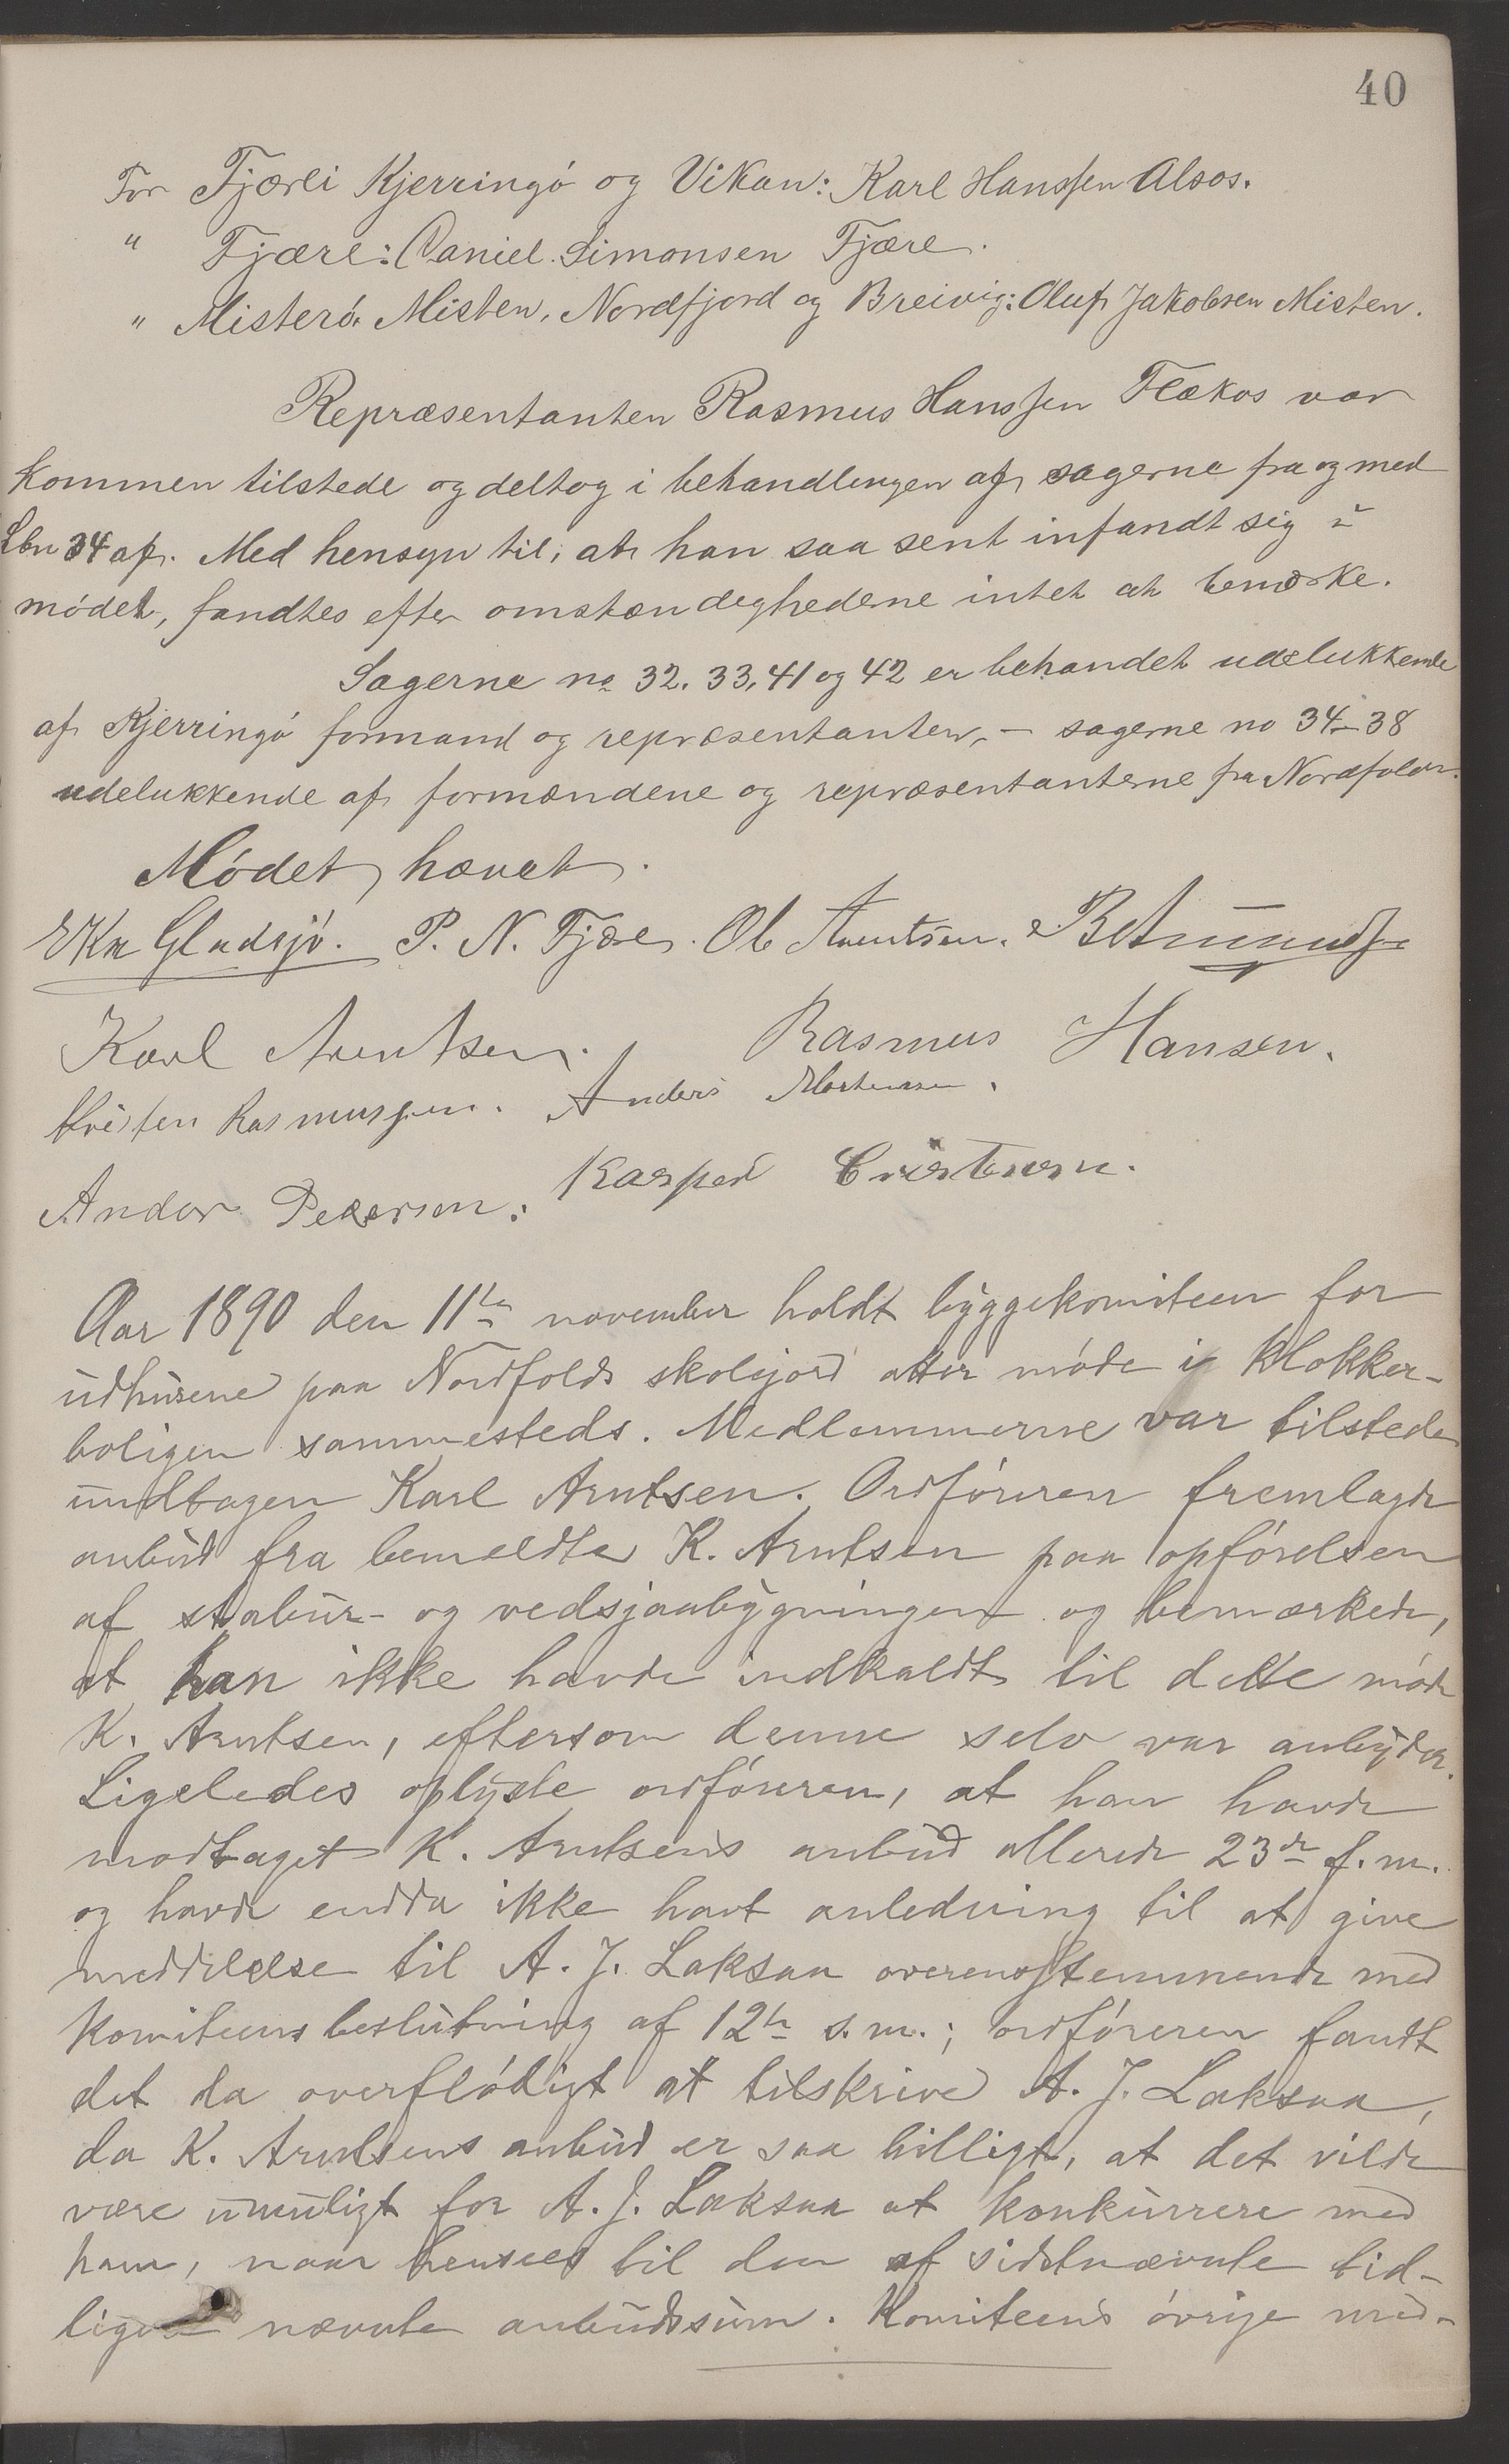 40
For Fjærli Kjerringø og Vikan: Karl Hanssen Alsos.
" Fjære: Daniel Simonsen Fjære.
" Misterø, Misten, Nordfjord og Breivig: Oluf Jakobsen Misten.
Repræsentanten Rasmus Hanssen Flækos var
kommen tilstede og deltog i behandlingen af sagerne fra og med
Lbn 34 af. Med hensyn til, at han saa sent infandt sig i
mødet, fandtes efter omstændighederne intet at bemærke.
Sagerne no 32. 33, 41 og 42 er behandet udelukkende
af Kjerringø formand og repræsentanter, – sagerne no 34–38
udelukkende af formændene og repræsentanterne fra Nordfolden.
Mødet hævet.
EKn Gladsjø. P. N. Fjære. Ol Arentsen.
Karl Arentsen. Rasmus Hansen.
Kristen Rasmussen. Anders Mortensen.
Andor Pedersen. Kasper Cristensen.
Aar 1890 den 11te november holdt byggekomiteen for
udhusene paa Nordfolds skolejord atter møde i klokker-
boligen sammesteds. Medlemmerne var tilstede
undtagen Karl Arntsen. Ordføreren fremlagde
anbud fra bemeldte K. Arntsen paa opførelsen
af stabur- og vedsjaabygningen og bemærkede,
at han ikke havde indkaldt til dette møde
K. Arntsen, eftersom denne selv var anbyder.
Ligeledes oplyste ordføreren, at han havde
modtaget K. Arntsens anbud allerede 23de f. m.
og havde endda ikke havt anledning til at give
meddelelse til A. J. Laksaa overensstemmende med
komiteens beslutning af 12te s. m.; ordføreren fandt
det da overflødigt at tilskrive A. J. Laksaa,
da K. Arntsens anbud er saa billigt, at det vilde
være umuligt for A. J. Laksaa at konkurrere med
ham, naar hensees til den af sidstnævnte tid-
ligere nævnte anbudssum. Komiteens øvrige med-